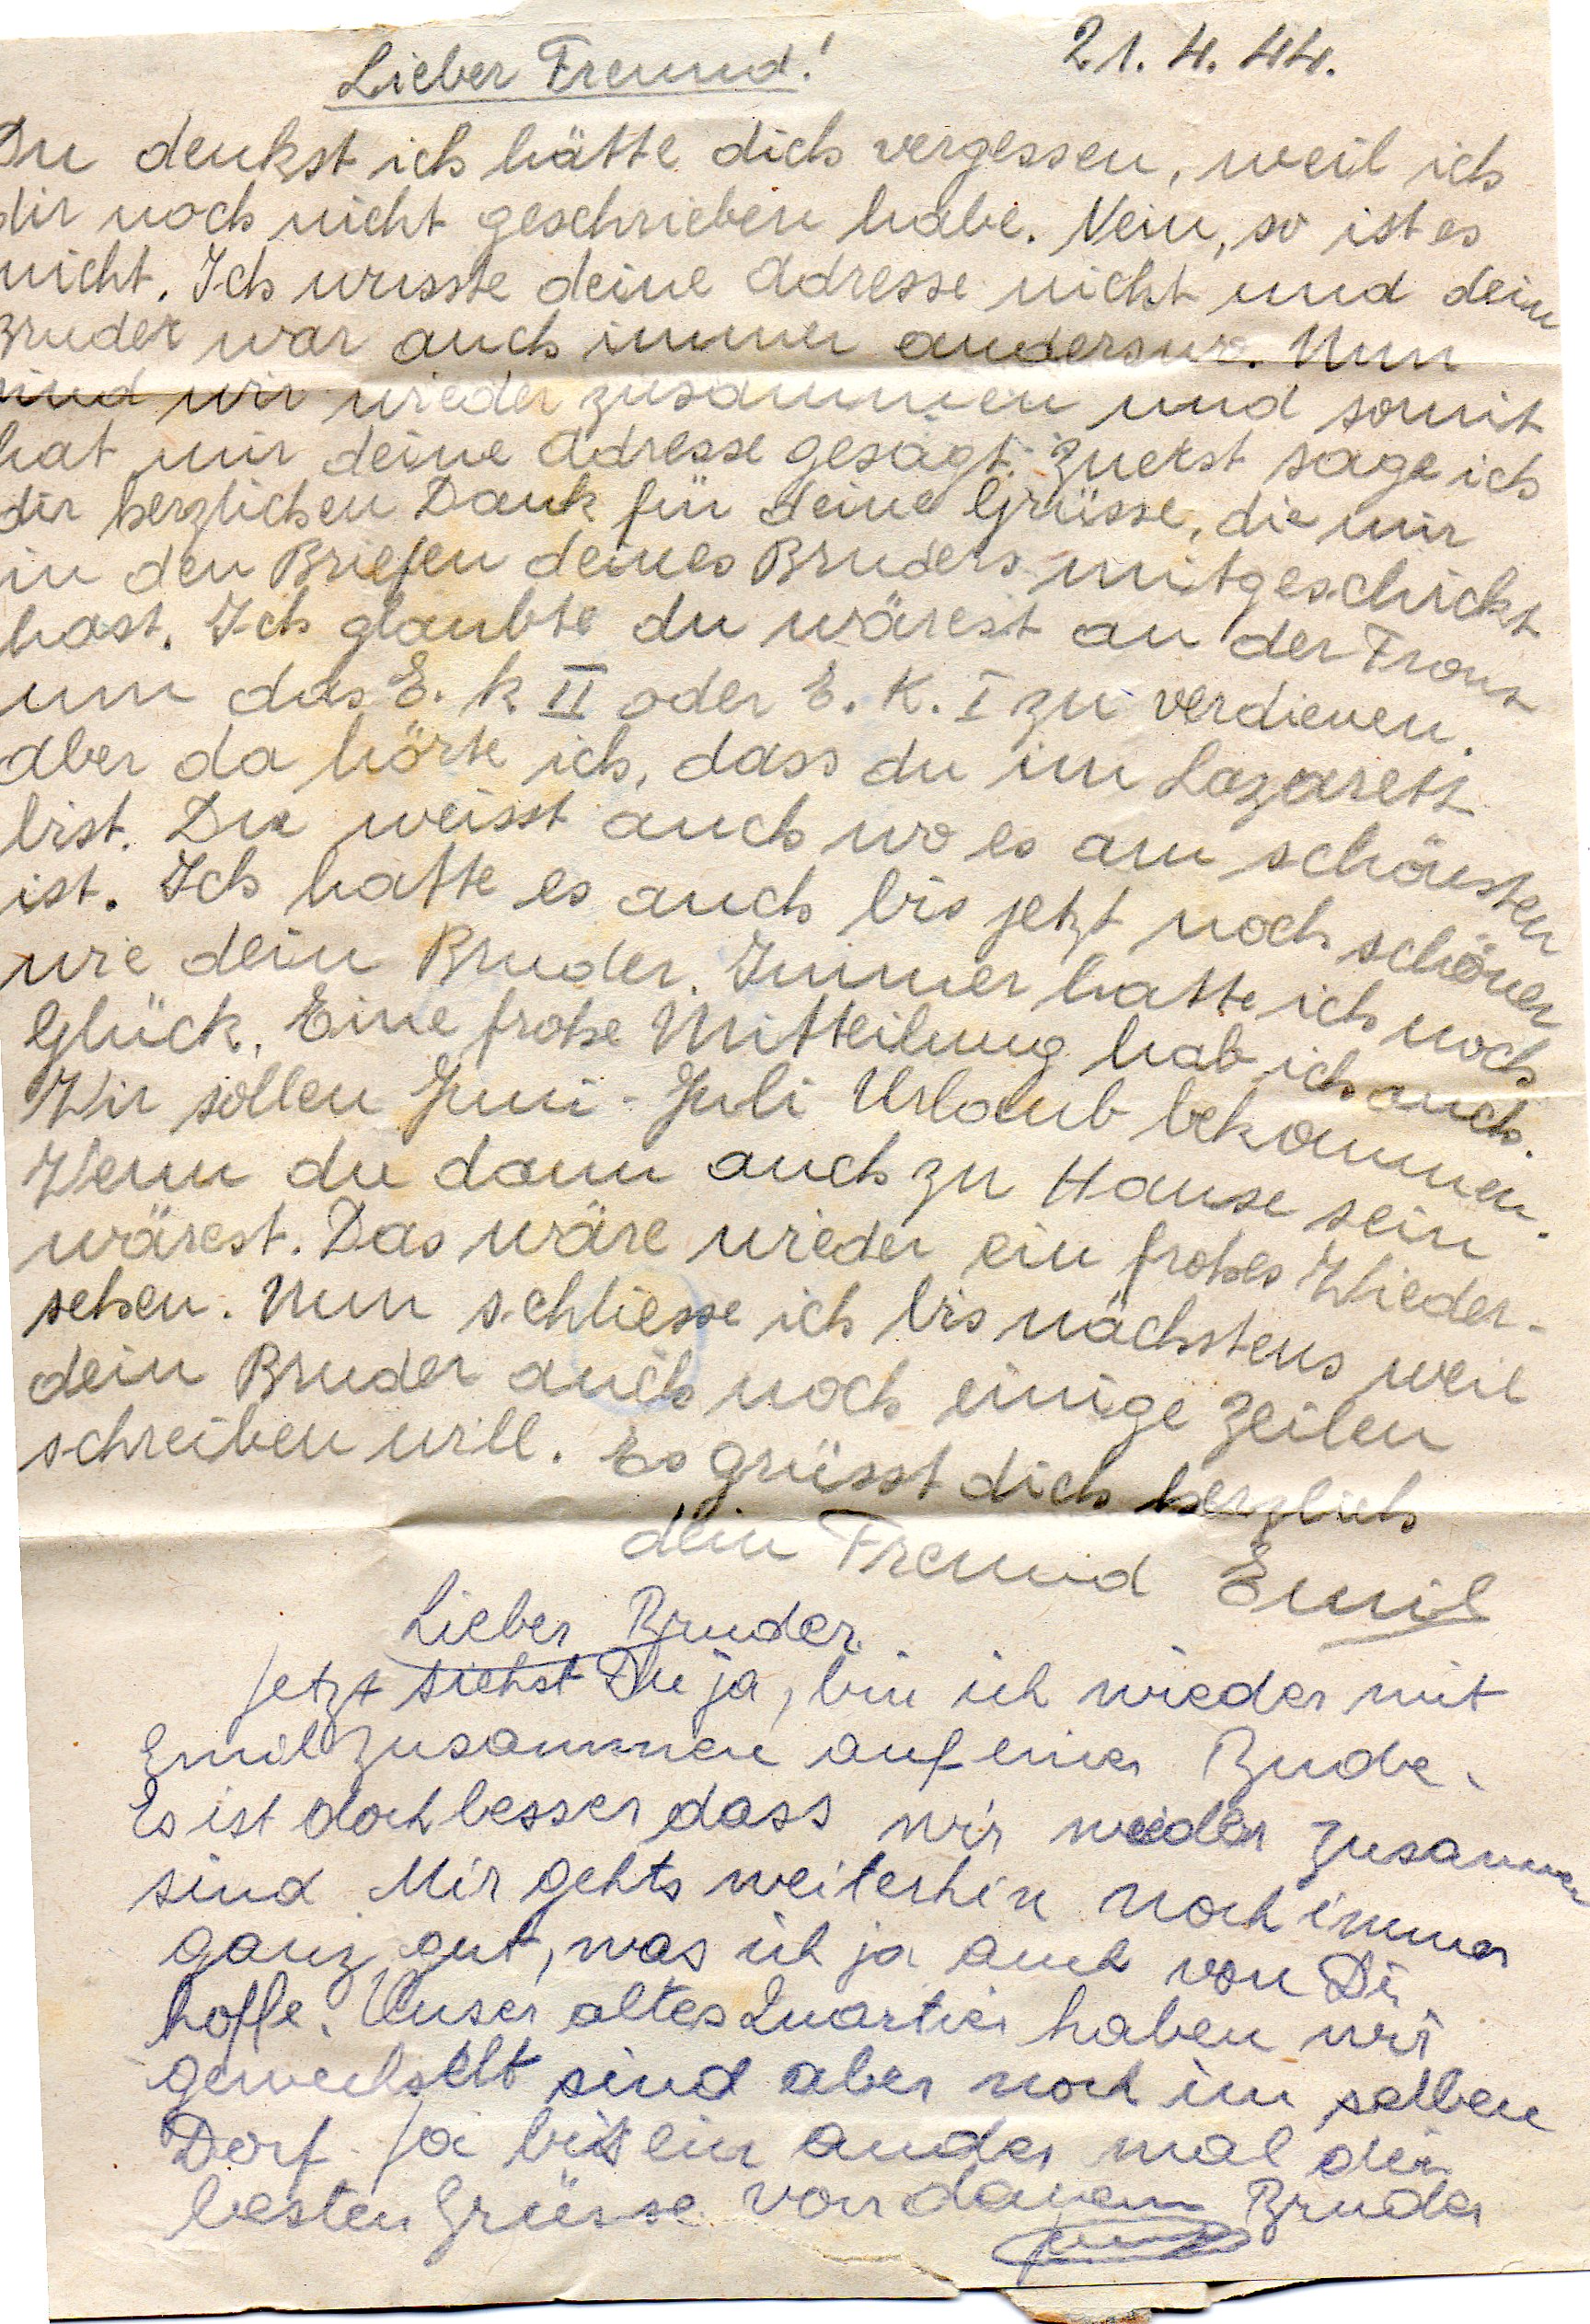 Lieber Freund! 21.4.44.
Du denkst ich hätte dich vergessen, weil ich
dir noch nicht geschrieben habe. Nein, so ist es
nicht. Ich wusste deine Adresse nicht und dein
Bruder war auch immer anderswo. Nun
sind wir wieder zusammen und somit
hat mir deine Adresse gesagt. Zuerst sage ich
dir herzlichen Dank für deine Grüsse, die mir
in den Briefen deines Bruders mitgeschickt
hast. Ich glaubte du wärest an der Front
um das E. K II oder E. K. I zu verdienen.
Aber da hörte ich, dass du im Lazarett
bist. Du weisst auch wo es am schönsten
ist. Ich hatte es auch bis jetzt noch schöner
wie dein Bruder. Immer hatte ich noch
Glück. Eine frohe Mitteilung hab ich auch.
Wir sollen Juni - Juli Urlaub bekommen.
Wenn du dann auch zu Hause sein
wärest. Das wäre wieder ein frohes Wieder-
sehen. Nun schliesse ich bis nächstens weil
dein Bruder auch noch einige Zeilen
schreiben will. Es grüsst dich herzlich
dein Freund Emil
Lieber Bruder
Jetzt siehst Du ja, bin ich wieder mit
Emil zusammen auf einer Bude.
Es ist doch besser dass wir wieder zusammen
sind. Mir gehts weiterhin noch immer
ganz gut, was ich ja auch von Dir
hoffe. Unser altes Quartier haben wir
gewechselt sind aber noch im selben
Dorf. Ja bis ein ander mal die
besten Grüsse von Bruder